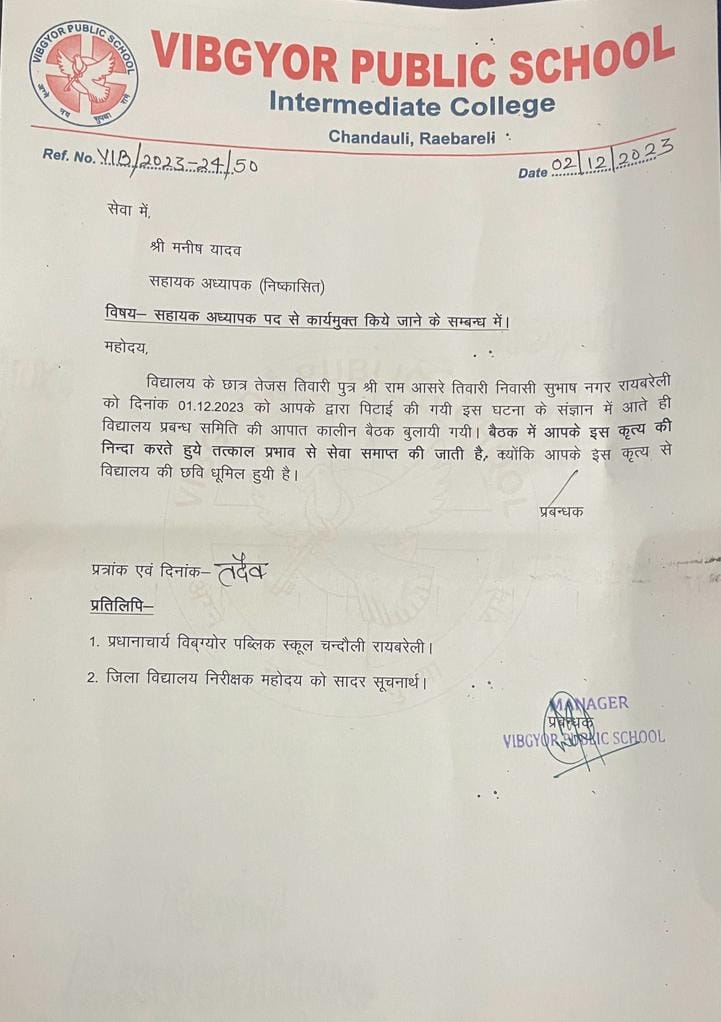 VIBGYOR PUBLIC SCHOOL
अग्ने नय सुपथा राये
VIBGYOR PUBLIC SCHOOL
Intermediate College
Chandauli, Raebareli
Ref. No. VIB/2023-24/50
Date 02/12/2023
सेवा में,
श्री मनीष यादव
सहायक अध्यापक (निष्कासित)
विषय– सहायक अध्यापक पद से कार्यमुक्त किये जाने के सम्बन्ध में।
महोदय,
विद्यालय के छात्र तेजस तिवारी पुत्र श्री राम आसरे तिवारी निवासी सुभाष नगर रायबरेली
को दिनांक 01.12.2023 को आपके द्वारा पिटाई की गयी इस घटना के संज्ञान में आते ही
विद्यालय प्रबन्ध समिति की आपात कालीन बैठक बुलायी गयी। बैठक में आपके इस कृत्य की
निन्दा करते हुये तत्काल प्रभाव से सेवा समाप्त की जाती है, क्योंकि आपके इस कृत्य से
विद्यालय की छवि धूमिल हुयी है।
प्रबन्धक
प्रत्रांक एवं दिनांक– तदैव
प्रतिलिपि–
1. प्रधानाचार्य विब्ग्योर पब्लिक स्कूल चन्दौली रायबरेली।
2. जिला विद्यालय निरीक्षक महोदय को सादर सूचनार्थ।
MANAGER
प्रबन्धक
VIBGYOR PUBLIC SCHOOL